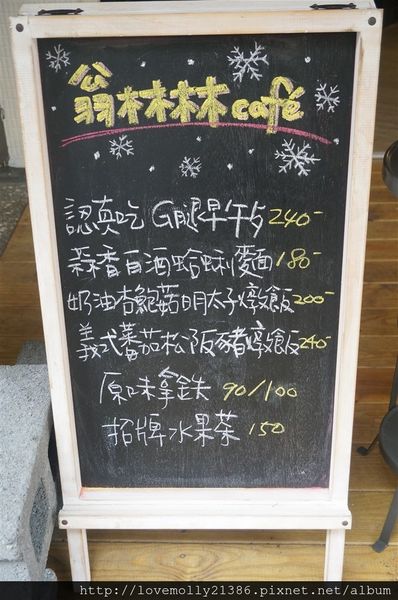 翁林林林 café
認真吃 G腿早午 240-
蒜香白酒蛤蜊麵 180-
奶油杏鮑菇明太子燉飯 200-
義式蕃茄松阪豬燉飯 240-
原味拿鐵 90/100
招牌水果茶 150
http://lovemolly21386.pixnet.net/album